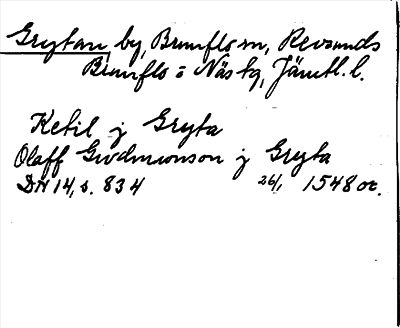 Grytan by, Brunflo sn, Revsunds
Brunflo o Näs tg, Jämtl. l.
Ketil j Gryta
Olaff Gwdmwnson j Gryta
DN 14, s. 834 26/1 1548 or.